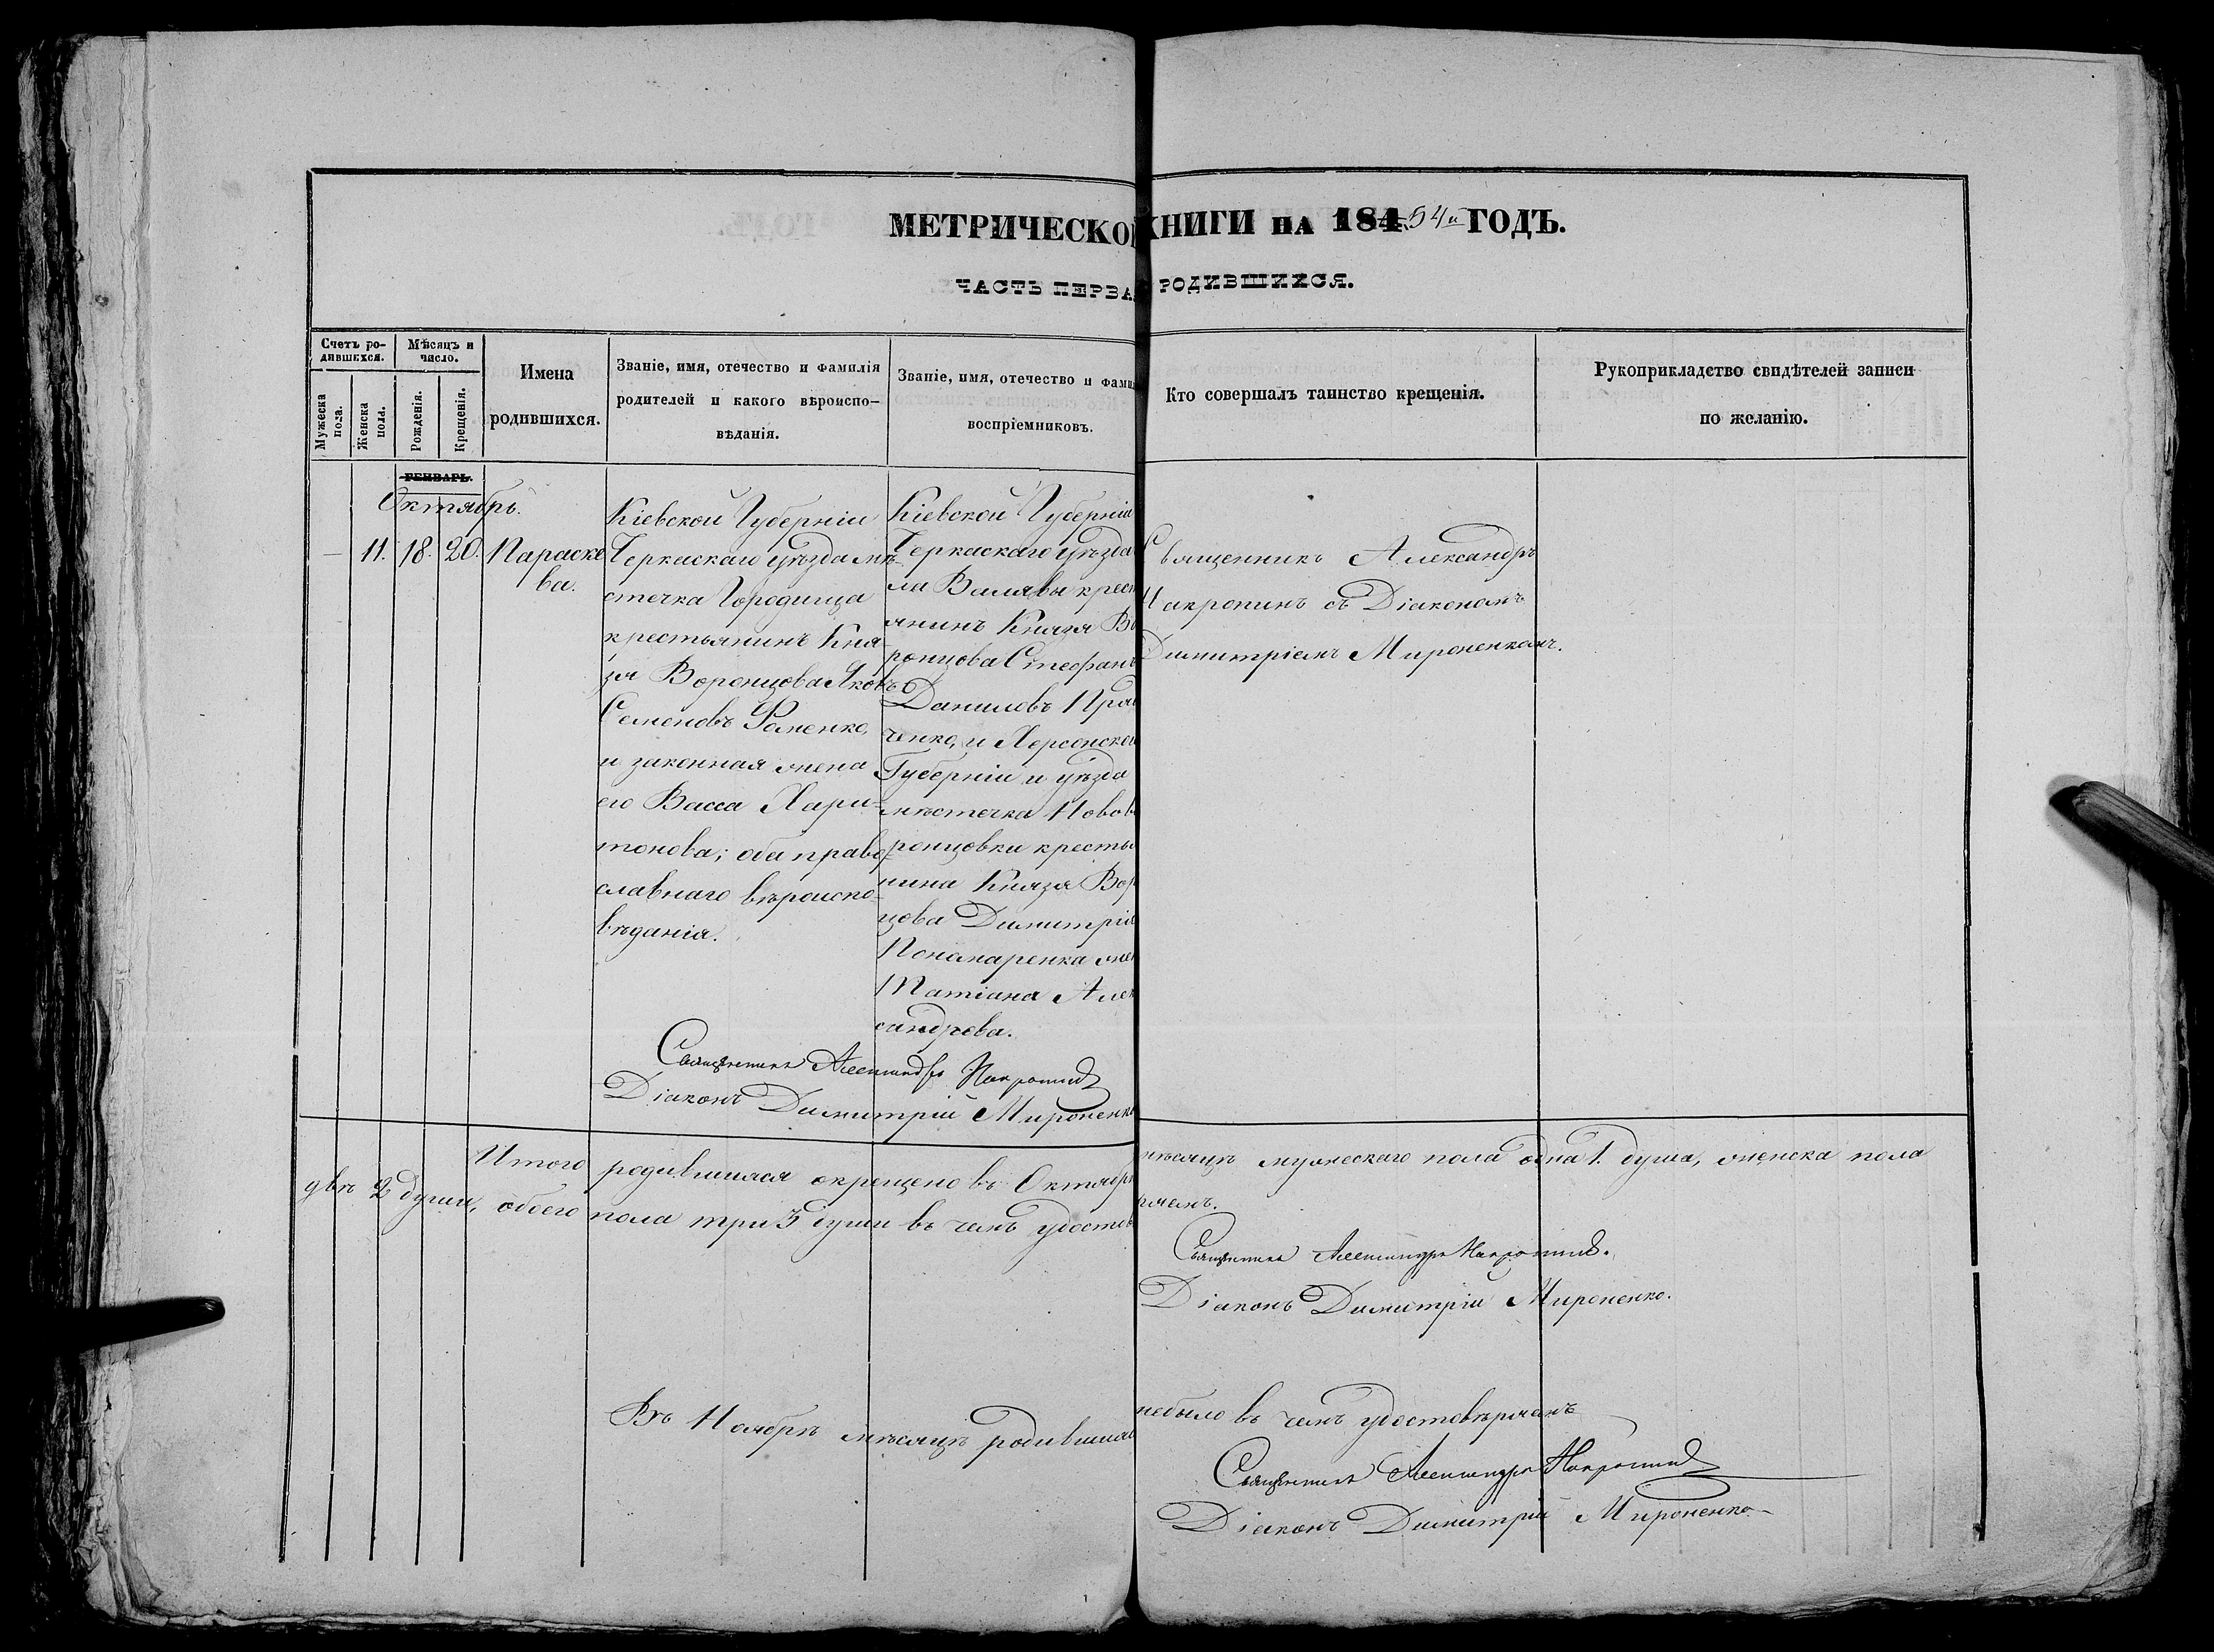 МЕТРИЧЕСКО КНИГИ на 184 54й ГОДЪ.
ЧАСТЬ ПЕРВА РОДИВШИХСЯ.
Счетъ ро-
дившихся.
Мѣсяцъ и
число.
Мужеска
пола.
Женска
пола.
Рожденія.
Крещенія.
Имена
родившихся.
Званіе, имя, отечество и фамилія
родителей и какого вѣроиспо-
вѣданія.
Званіе, имя, отечество и фами
воспріемниковъ.
Кто совершалъ таинство крещенія.
Рукоприкладство свидѣтелей записи
по желанію.
ГЕНВАРЬ.
Октябрь.
— 11. 18. 20.
Параске
ва.
Кіевской Губерніи
Черкаскаго уѣзда мѣ-
стечка Городища
крестьянинъ Кня-
зя Воронцова Яковъ
Семеновъ Фоменко,
и законная жена
его Васса Хари-
тонова; оба право-
славнаго вѣроиспо-
вѣданія.
Кіевской Губерніи
Черкаскаго уѣзда
ла Валявы крест
янинъ Князя Во
ронцова Стефанъ
Даниловъ Пра
ченко, и Херсонской
Губерніи и уѣзда
мѣстечка Ново
ронцовки крестья
нина Князя Вор
цова Димитрія
Пономаренка жен
Татіана Алек
сандрова.
Священникъ Александръ
Накропинъ съ Діакономъ
Димитріемъ Мироненкомъ.
Священникъ Александръ Накропинъ
Діаконъ Димитрій Мироненко
Итого родившихся окрещено въ Октябрѣ мѣсяцѣ мужескаго пола одна 1. душа, женска пола
двѣ 2 души, обоего пола три 3 души въ чемъ удостов ряемъ.
Священникъ Александръ Накропинъ.
Діаконъ Димитрій Мироненко.
Въ Ноябрѣ мѣсяцѣ родившихся небыло въ чемъ удостовѣряемъ
Священникъ Александръ Накропинъ
Діаконъ Димитрій Мироненко